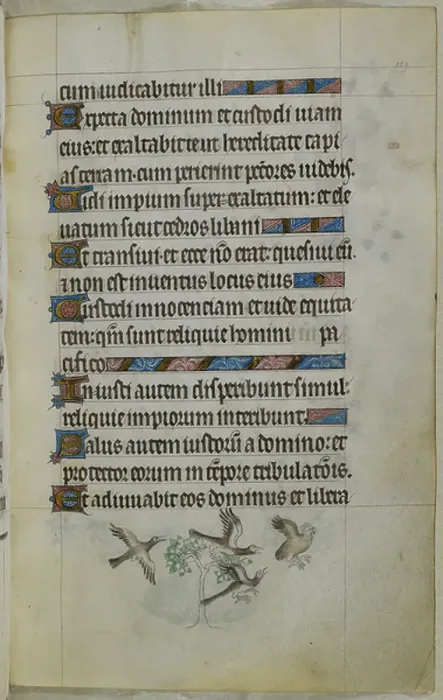 cum iudicabitur illi
Expecta dominum et custodi uiam
eius: et exaltabit te ut hereditate capi
as terram. cum perierint pctores uidebis.
Uidi impium super exaltatum: et ele
uatum sicut cedros libani
Et transiui. et ecce nõ erat: quesiui eũ.
⁊ non est inuentus locus eius
Custodi innocenciam et uide equita
tem: qm̃ sunt reliquie homini pa
cifico
Iniusti autem disperibunt simul:
reliquie impiorum interibunt.
Salus autem iustorũ a domino: et
protector eorum in tẽpore tribulatõis.
Et adiuuabit eos dominus et libera